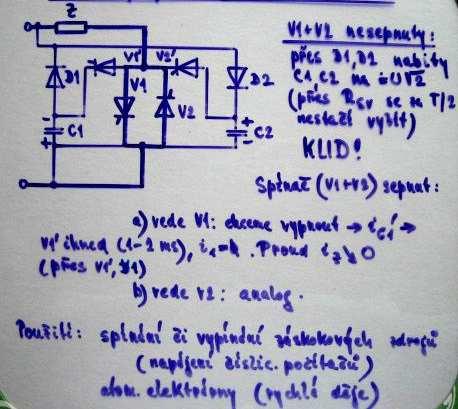 Z
V1+V2 nesepnuty:
přes D1, D2 nabity
C1 C2 na ≐U√2
(přes Rsv se za T/2
nestačí vybít)
KLID!
D1
V1'
V2'
V1
V2
D2
C1
C2
Spínač (V1+V2) sepnut:
a) vede V1: chceme vypnout → iC1' →
V1' ihned (1-2 ms), i1= . Proud iz↘0
(přes V1', )
b) vede V2: analog.
Použití: spínání či vypínání záskokových zdrojů
(napájení číslic. počítačů)
atom. elektrárny (rychlé děje)